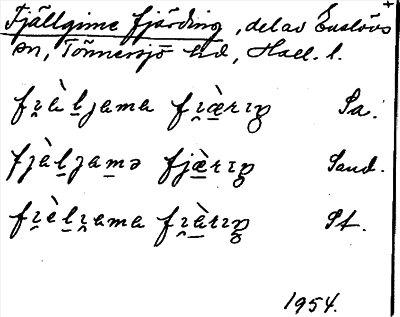 Fjällgime fjärding, del av Enslövs
sn, Tönnersjö hd, Hall. l.
fɪ̯àl̠jama fɪ̯æ̀rɪŋ Sa.
fjàl̠jam̠ə fjæ̀rɪŋ Sand.
fɪ̯èl̠ɪ̯ama fɪ̯àrɪŋ St.
1954.